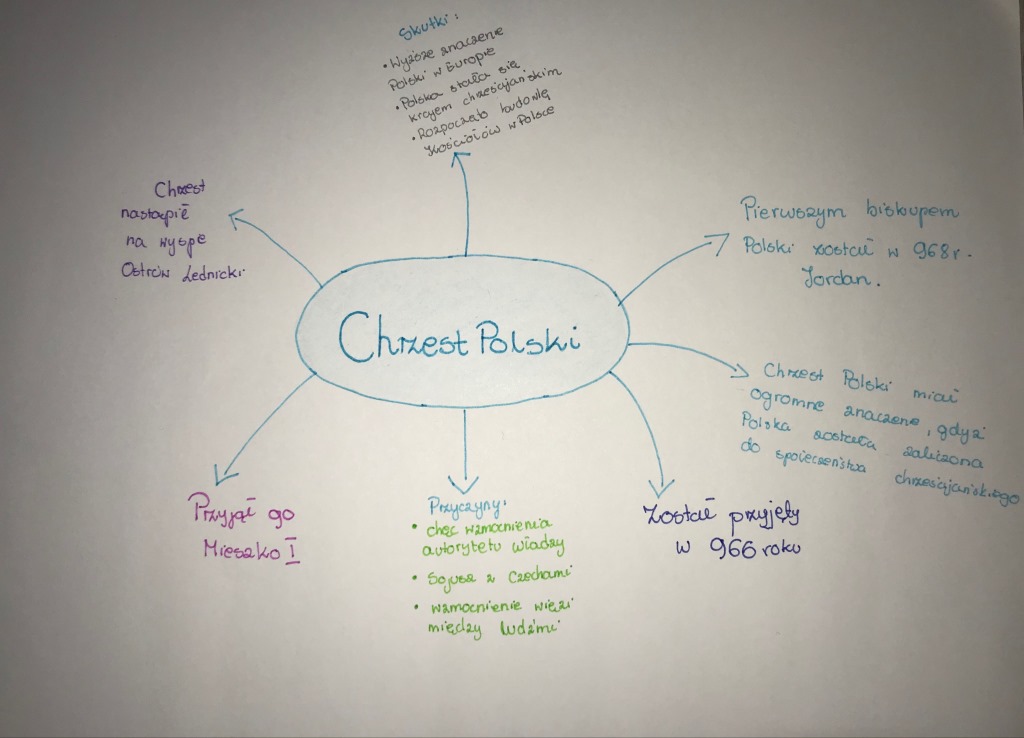 Skutki:
• Wyższe znaczenie
Polski w Europie
• Polska stała się
krajem chrześcijańskim
• Rozpoczęto budowlę
kościołów w Polsce
Chrzest
nastąpił
na wyspe
Ostrów Lednicki
Pierwszym biskupem
Polski został w 968r.
Jordan.
Chrzest Polski
Chrzest Polski miał
ogromne znaczene, gdyż
Polska została zaliczona
do społeczeństwa chrześcijańskiego
Przyjął go
Mieszko I
Przyczyny:
• chęć wzmocnienia
autorytetu władzy
• Sojusz z Czechami
• wzmocnienie więzi
między ludźmi
Został przyjęty
w 966 roku